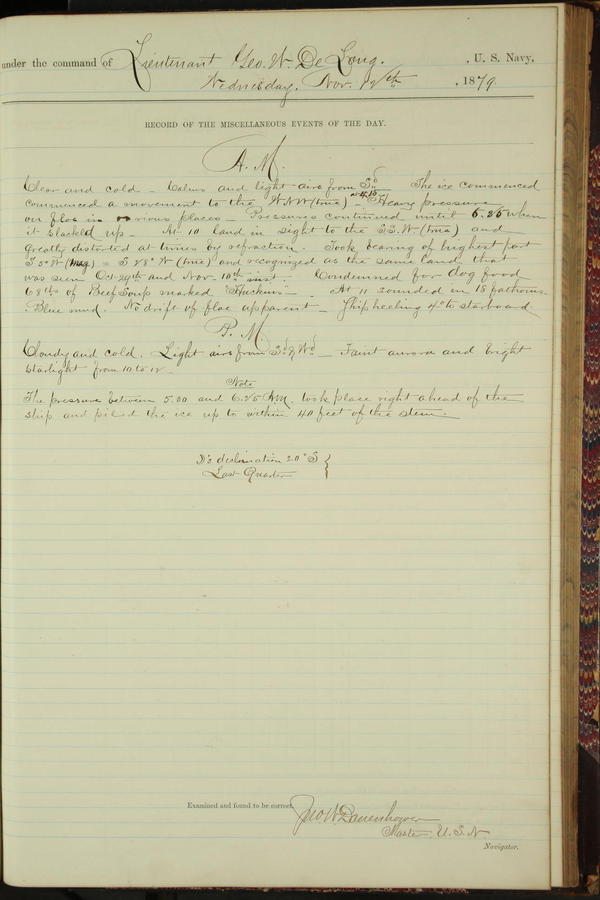 under the command of Lieutenant Geo. W. De Long. , U. S. Navy,
Wednesday, Nov. 12th , 1879.
RECORD OF THE MISCELLANEOUS EVENTS OF THE DAY.
A. M.
Clear and cold – Calms and light airs from Sd The ice commenced
commenced a movement to the W.N.W (true) – at 4.15 Heavy pressure
on floe in various places – Pressures continued until 6.25 when
it slacked up – At 10 land in sight to the S.S.W. (true) and
greatly distorted at times by refraction. Took bearing of highest part
S 5° W (mag) = S 28° W (true) and recognized as the same land that
was seen Oct. 29th and Nov. 10th inst. Condemned for dog food
68 lbs of Beef Soup marked Huckins – At 11 sounded in 18 fathoms.
Blue mud. No drift of floe apparent – Ship heeling 4° to starboard
P. M.
Cloudy and cold. Light airs from Sd & Wd – Faint aurora and bright
starlight from 10 to 12
Note
The pressure between 5.00 and 6.25 AM. took place right ahead of the
ship and piled the ice up to within 40 feet of the stem –
declination 20° S
Last Quarter
Examined and found to be correct.
Jno W Danenhower
Master, U.S.N
Navigator.